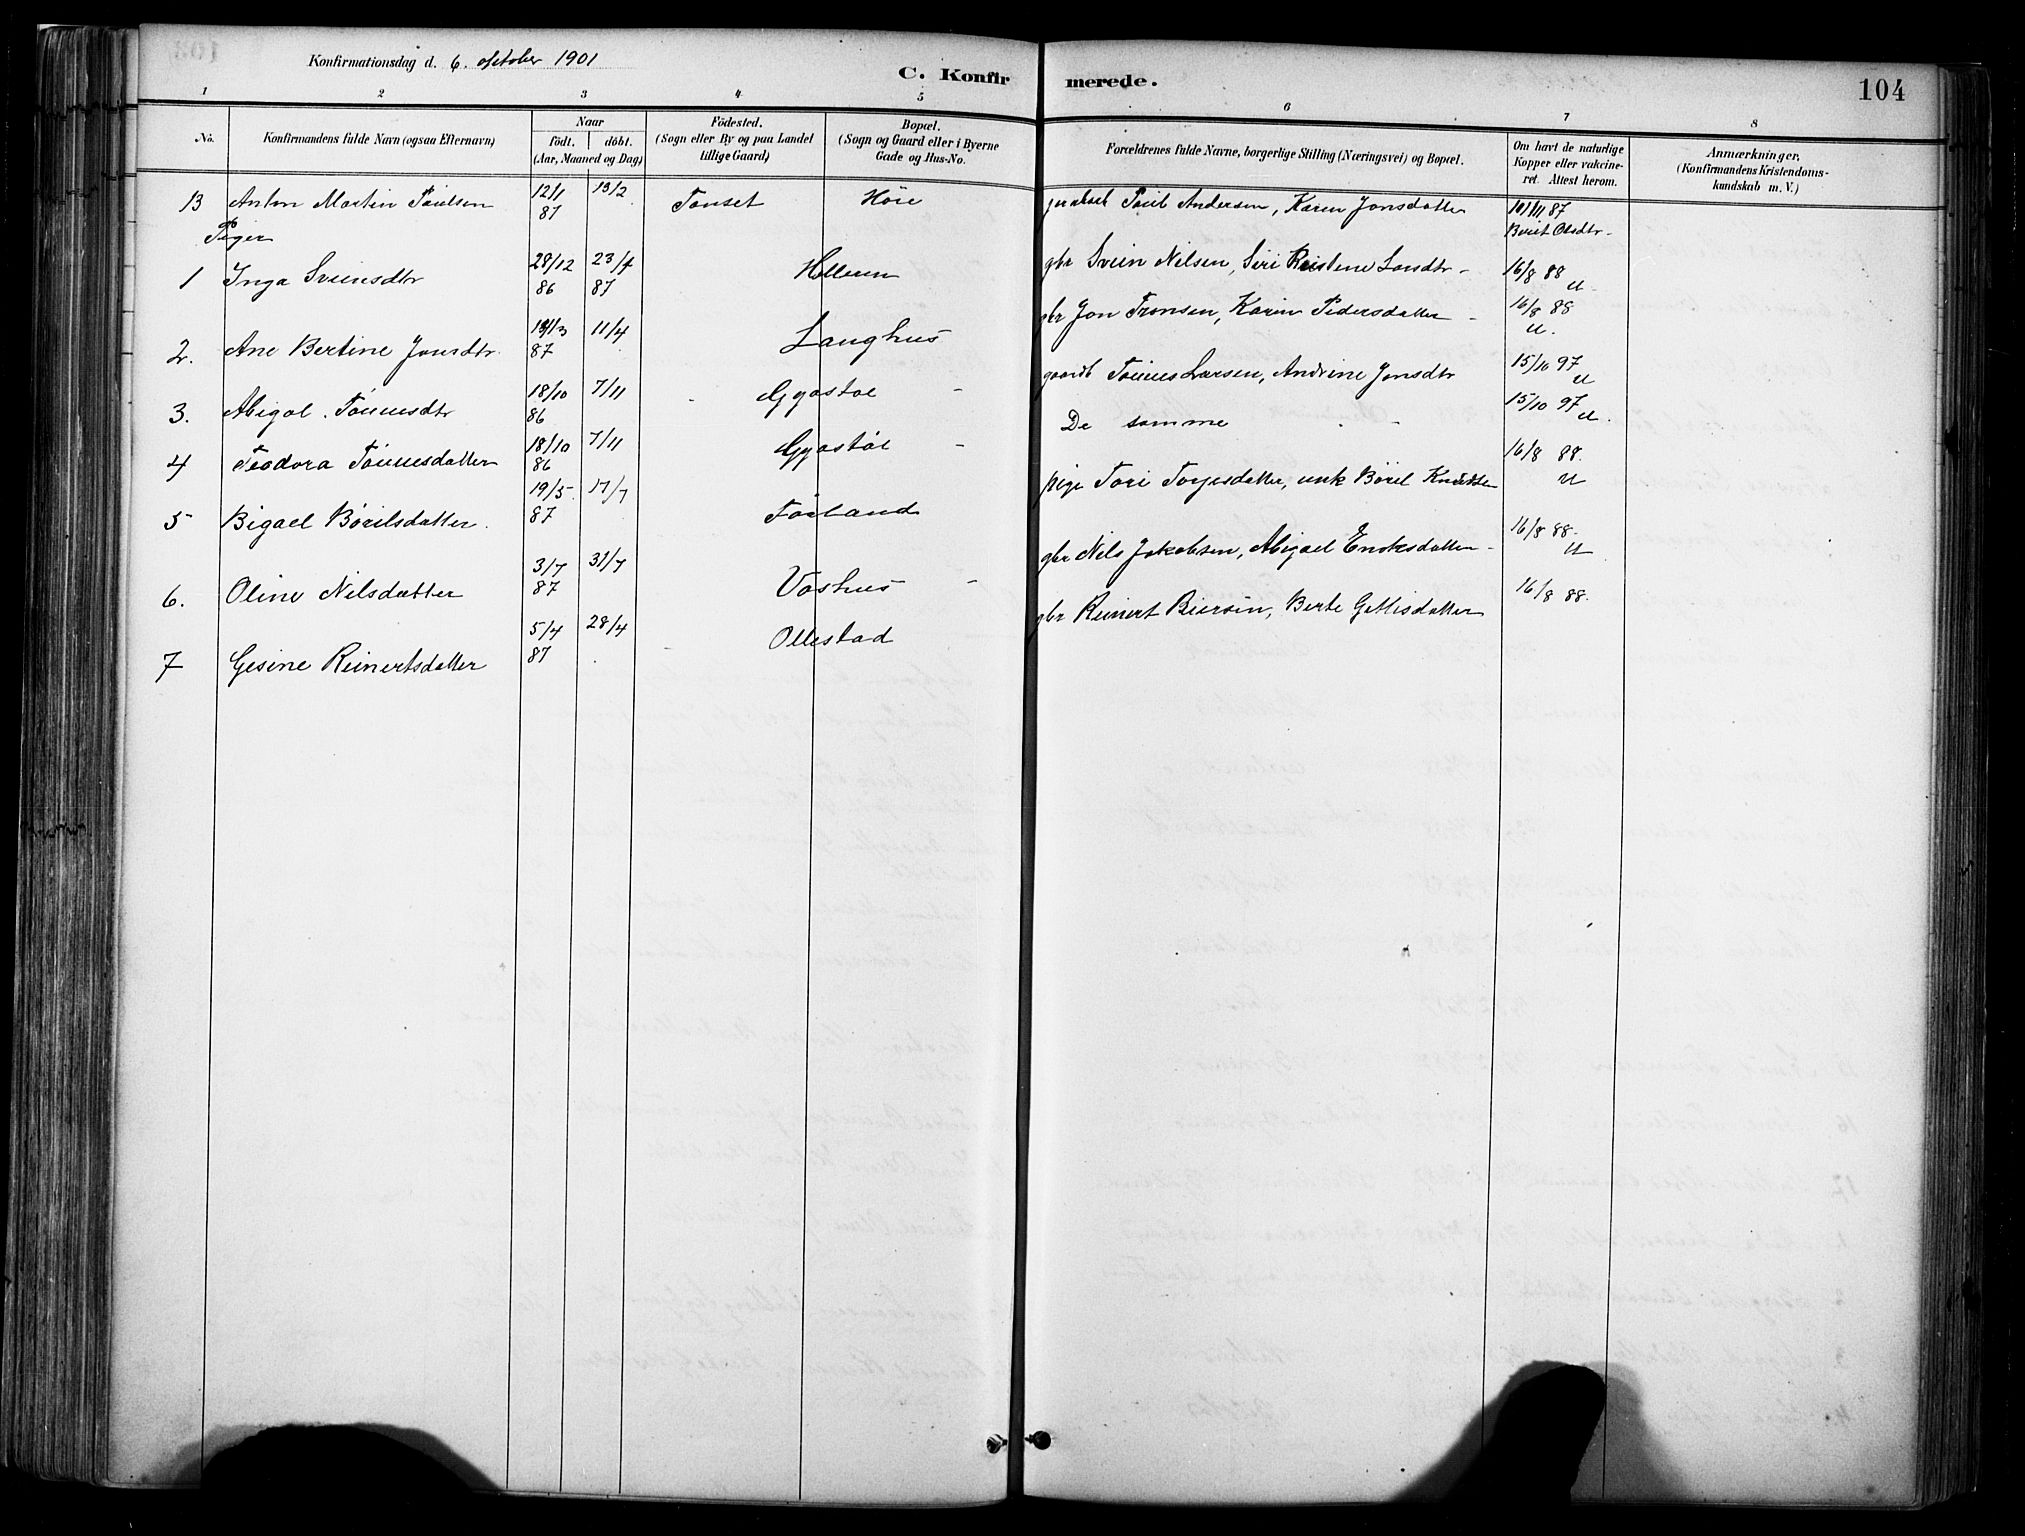 Konfirmationsdag d. 6. oktober 1901
C. Konfirmerede.
104
1 2 3 4 5 6 7 8
No.
Konfirmandens fulde Navn (ogsaa Efternavn)
Naar
födt. döbt.
(Aar, Maaned og Dag)
Födested.
(Sogn eller By og paa Landet
tillige Gaard)
Bopæl.
(Sogn og Gaard eller i Byerne
Gade og Hus-No.
Forældrenes fulde Navne, borgerlige Stilling (Næringsvei) og Bopæl.
Om havt de naturlige
Kopper eller vakcine-
ret. Attest herom.
Anmærkninger.
(Konfirmandens Kristendoms-
kundskab m. V.)
13 Anton Martin 12/1 87 13/2 Tonset Andersen, Karen Jonsdatter 87
Berit Olsdtr
Piger
1 Inga Sveinsdtr 28/12 86 23/4 87 Helleren gbr Svein Nilsen, Siri 16/8 88 u.
2. Ane Bertine Jonsdtr. 87 11/4 Langhus gbr Jon Tronsen, Karen Pedersdatter 16/8 88 u.
3. Abigal Tønnesdtr 18/10 86 7/11 Gyastøl Tønnes Larsen, Andrine Jonsdtr 15/10 97 u
4 Teodora Tønnesdatter 18/10 86 7/11 Gyastøl De samme 15/10 97 u.
5 Bigael Børilsdatter. 19/5. 87 17/7 Førland pige Tori unk Børil 16/8 88. u
6. Oline Nilsdatter 3/7 87 31/7 Voshus gbr Nils Jakobsen, Abigael 16/8 88. u
7 Gesine Reinertsdatter 5/4 87 28/4 Ollestad gbr Reinert Berte 16/8 88.